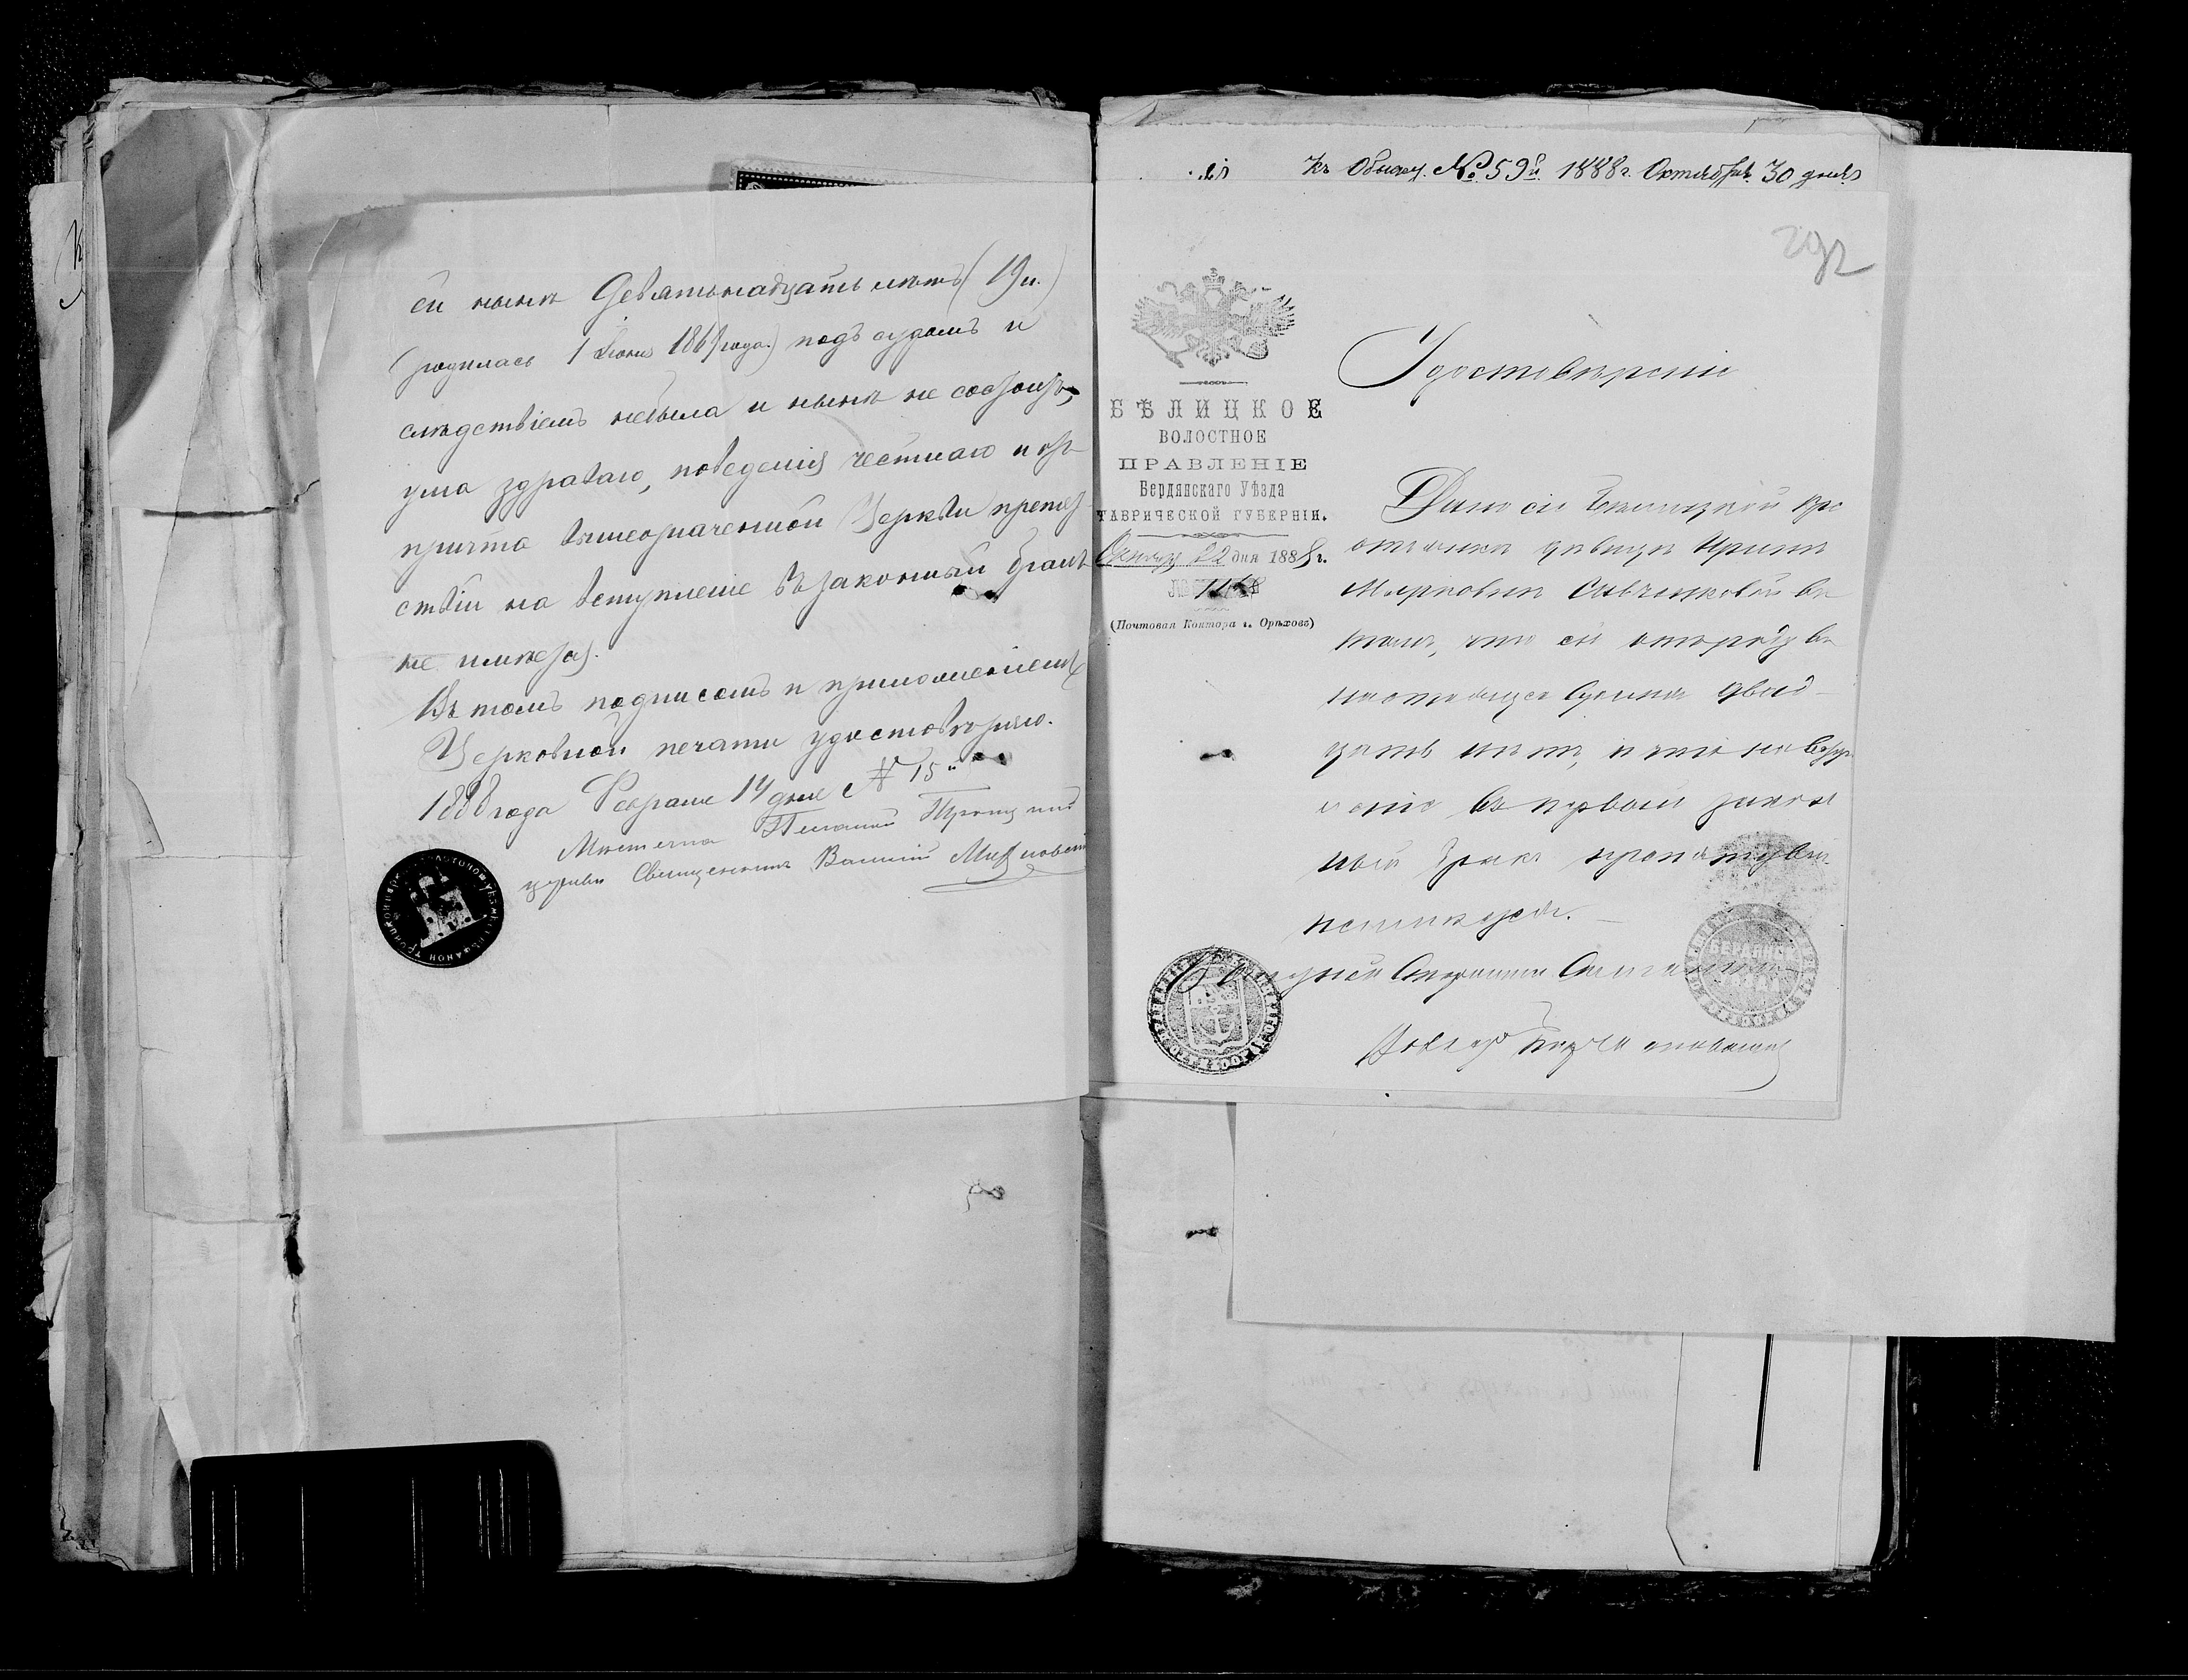 ей нынѣ Девятьнадцать лѣтъ (19 л.)
(родилась 1 Іюня 1869 года.) подъ судомъ и
слѣдствіемъ небыла и нынѣ не состоитъ,
ума здраваго, поведенія честнаго и отъ
причта вышеозначенной Церкви препят
ствій на вступленіе въ законный бракъ
не имѣетъ.
Въ томъ подписомъ и приложеніемъ
Церковной печати удостовѣряю.
1888 года Февраля 14 дня № 15й
Мѣстечка Троицкой
церкви Священникъ Василій
Къ Обыску. № 59й. 1888 г. Октября 30 дня
292
Удостовѣреніе
БѢЛИЦКОЕ
ВОЛОСТНОЕ
ПРАВЛЕНІЕ
Бердянскаго Уѣзда
ТАВРИЧЕСКОЙ ГУБЕРНІИ.
Октября 22 дня 1888 г.
№
(Почтовая Контора г. Орѣховъ)
Дано сіе Бѣлицкой кре
стьянкѣ дѣвицѣ Иринѣ
Савченковой въ
томъ, что ей отъ роду въ
настоящее время двад
цать лѣтъ, и что на вступ
леніе въ первый закон
ный бракъ препятствій
неимѣется.
Волостной Старшина